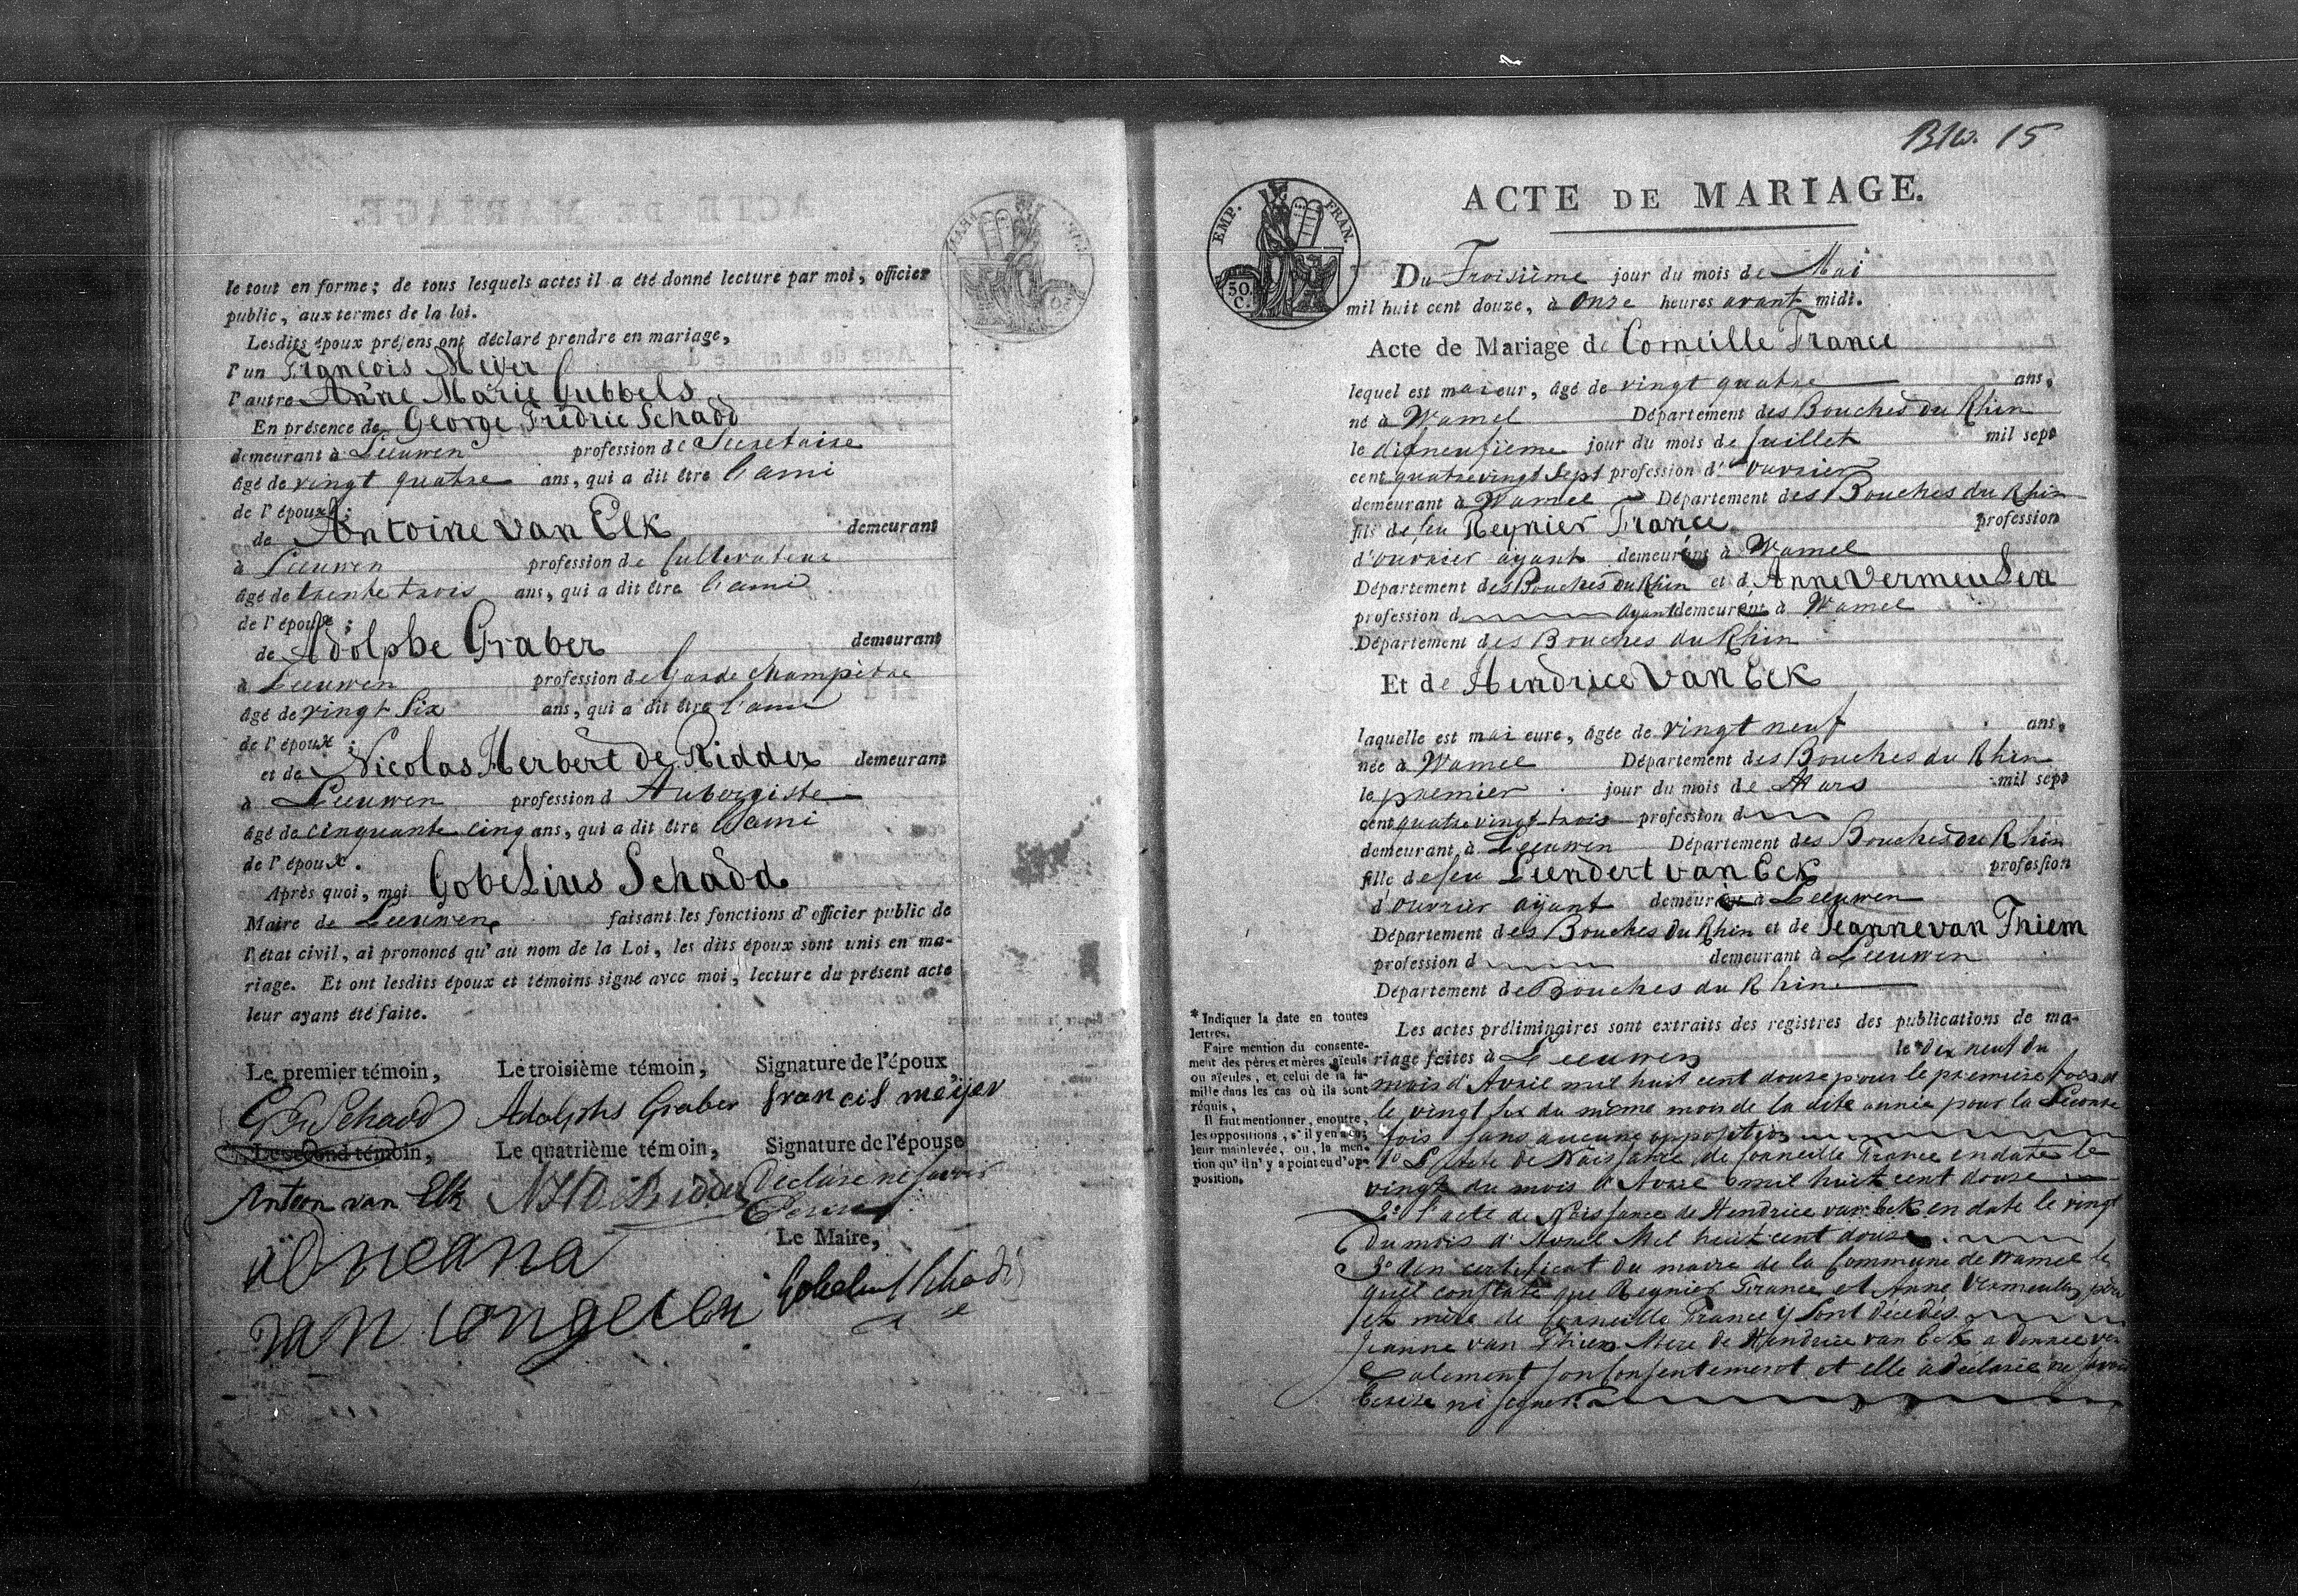 le tout en forme; de tous lesquels actes il a été donné lecture par moi, officier
public, aux termes de la loi.
Lesdits époux présens ont déclaré prendre en mariage,
l'un François Meijer
l'autre Anne Marie Gubbels
En présence de George Fredric Schadd
demeurant à Leeuwen profession de Secretaire
âgé de vingt quatre ans, qui a dit être l'ami
de l'époux;
de Antoine van Elk demeurant
à Leeuwen profession de Cultivateur
âgé de trente trois ans, qui a dit être l'ami
de l'époux;
de Adolphe Graber demeurant
à Leeuwen profession de Garde champètre
âgé de vingt six ans, qui a dit être l'ami
de l'époux;
et de Nicolas Herbert de Ridder demeurant
à Leeuwen profession d Aubergiste
âgé de cinquante cinq ans, qui a dit être l'ami
de l'époux.
Après quoi, moi Gobelius Schadd
Maire de Leeuwen faisant les fonctions d'officier public de
l'état civil, ai prononcé qu'au nom de la Loi, les dits époux sont unis en ma-
riage. Et ont lesdits époux et témoins signé avec moi, lecture du présent acte
leur ayant été faite.
Le premier témoin, Le troisième témoin, Signature de l'époux,
Schadd Adolphs Graber francis meijer
Le second témoin, Le quatrième témoin, Signature de l'épouse
Antoon van Elk NHD Ridder Declare ne savoir
Ecrire
Le Maire,
van
Gobelius Schadd
Blw. 15
ACTE DE MARIAGE.
EMP. FRAN.
50. C.
Du Troisième jour du mois de Mai
mil huit cent douze, à onze heures avant midi.
Acte de Mariage de Corneille France
lequel est maieur, âgé de vingt quatre ans,
né à Wamel Département des Bouches du Rhin
le dixneufieme jour du mois de Juillet mil sept
cent quatrevingt sept profession d'ouvrier
demeurant à Wamel Département des Bouches du Rhin
fils de feu Reynier France profession
d'ouvrier ayant demeuré à Wamel
Département des Bouches du Rhin et d'Anne Vermeulen
profession d ayant demeuré à Wamel
Département des Bouches du Rhin
Et de Hendrice van Eck
laquelle est maieure, âgée de vingt neuf ans,
née à Wamel Département des Bouches du Rhin
le premier jour du mois de Mars mil sept
cent quatre vingt trois profession d
demeurant à Leeuwen Département des Bouches du Rhin
fille de feu Leendert van Eck profession
d'ouvrier ayant demeuré à Leeuwen
Département des Bouches du Rhin et de Jeanne van Thiem
profession d demeurant à Leeuwen
Département de Bouches du Rhin
* Indiquer la date en toutes
lettres.
Faire mention du consente-
ment des pères et mères, aïeuls
ou aïeules, et celui de la fa-
mille dans les cas où ils sont
réquis.
Il faut mentionner, enoutre,
les oppositions, s'il y en a eu;
leur mainlevée, ou, la men-
tion qu'il n'y a point eu d'op-
position.
Les actes préliminaires sont extraits des registres des publications de ma-
riage faites à Leeuwen le dix neuf du
mois d'Avril mil huit cent douze pour le premiere fois et
le vingt six du même mois de la dite année pour la Seconde
fois sans aucune opposition
1º L'acte de Naissance de Corneille France en date le
vingt du mois d'Avril mil huit cent douze
2º l'acte de Naissance de Hendrice van Eck en date le vingt
du mois d'Avril Mil huit cent douze
3º d'un certificat du maire de la Commune de Wamel le
quel constate que Reynier France et Anne Vermeulen père
et mère de Corneille France y sont décedés
Jeanne van Thiem Mere de Hendrice van Eck a donnee ver
balement son Consentement et elle a declarée ne savoir
Ecrire ni signer